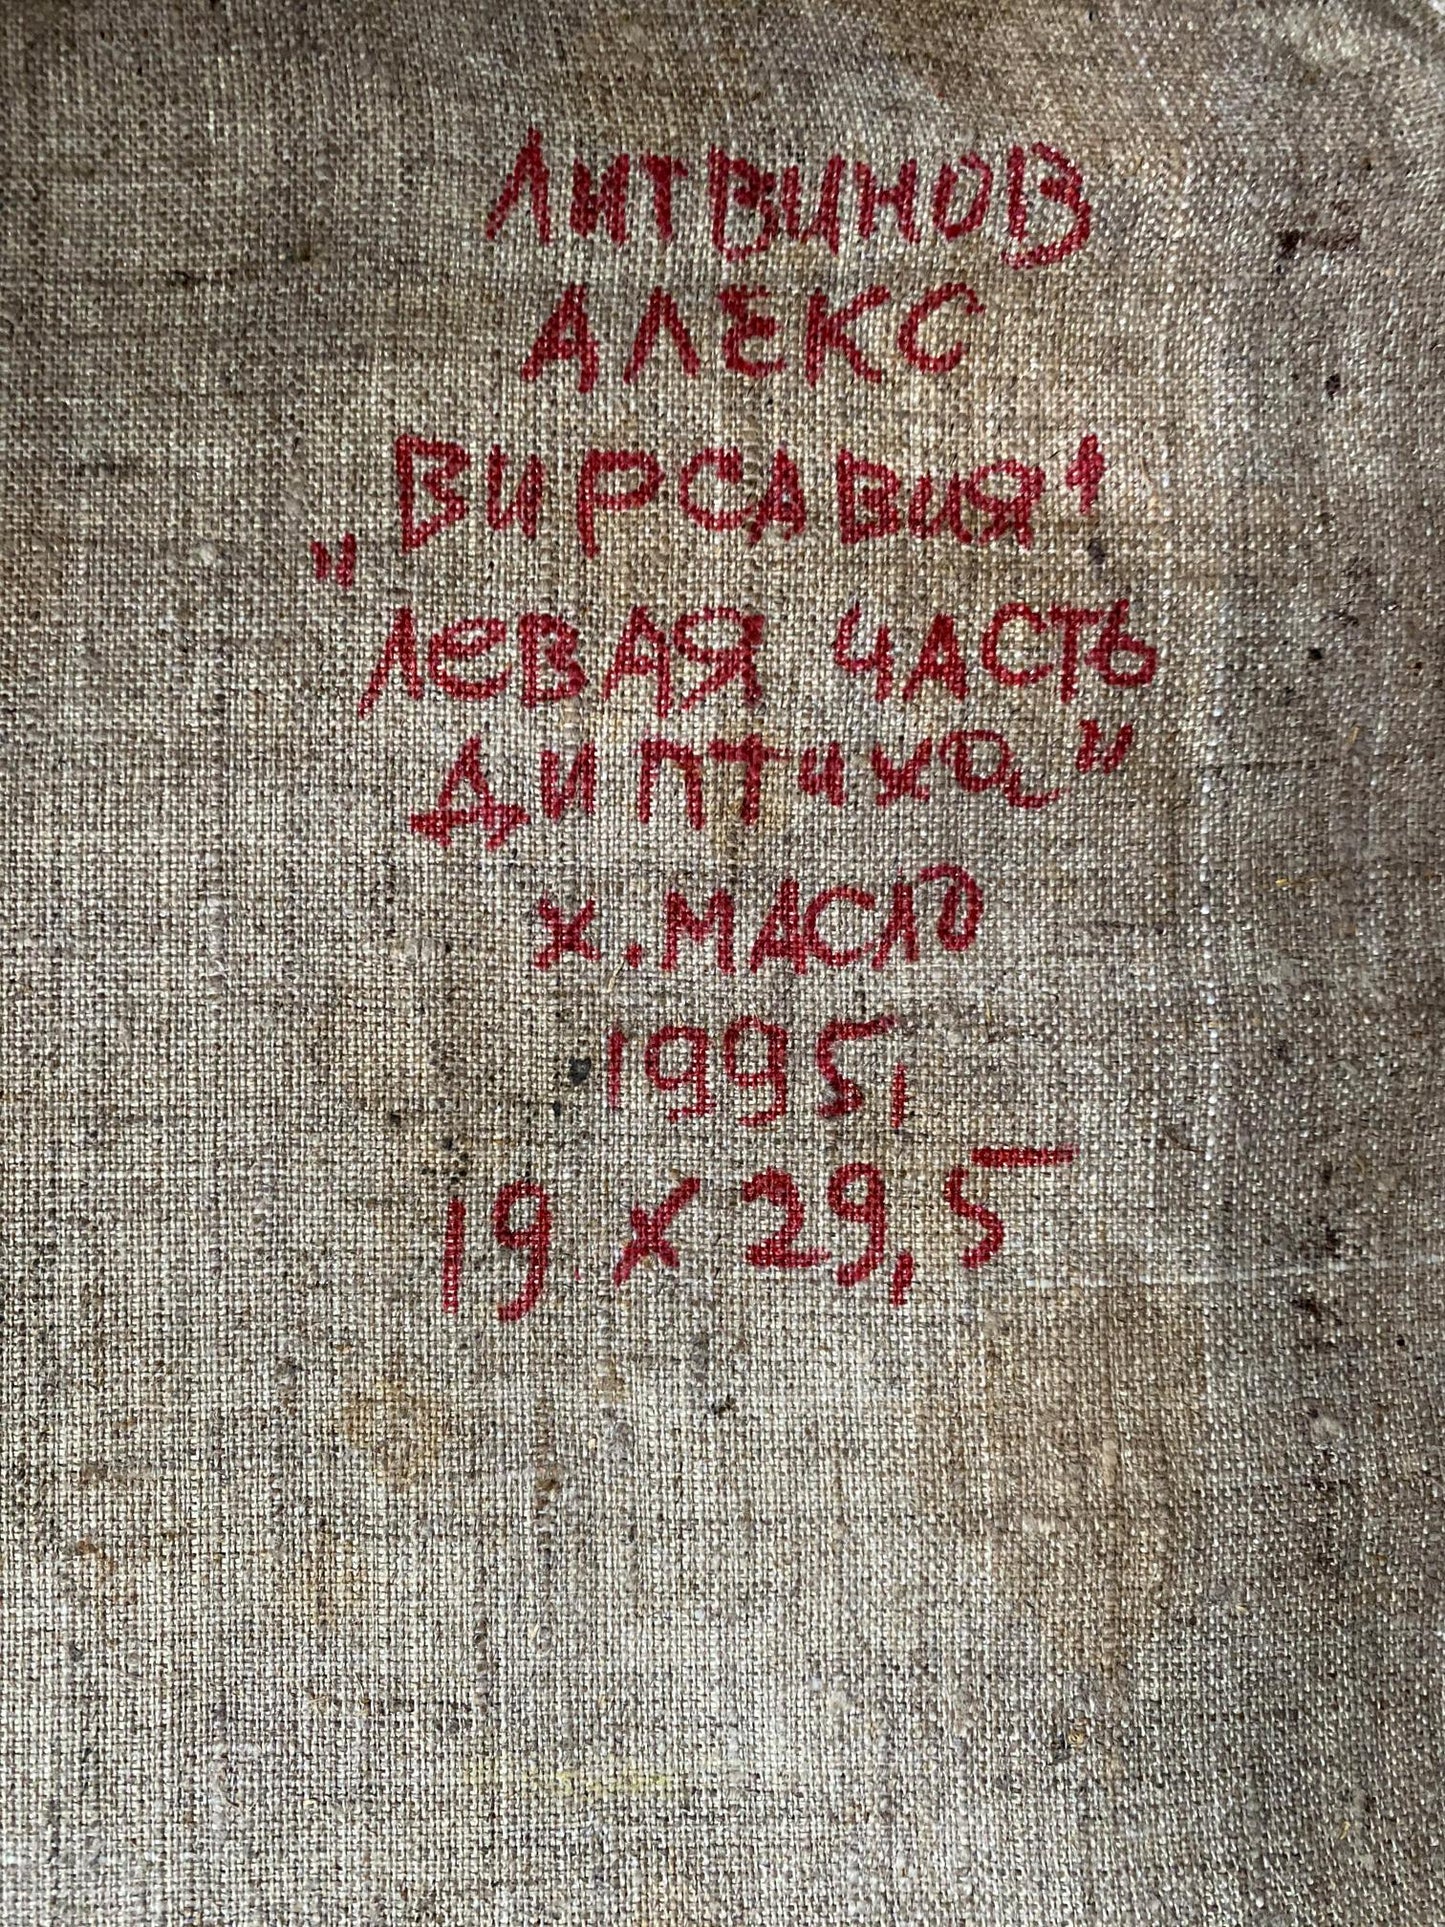 ЛИТВИНОВ
АЛЕКС
„ВИРСАВИЯ"
ЛЕВАЯ ЧАСТЬ
ДИПТИХА"
Х. МАСЛО
1995,
19 х 29,5